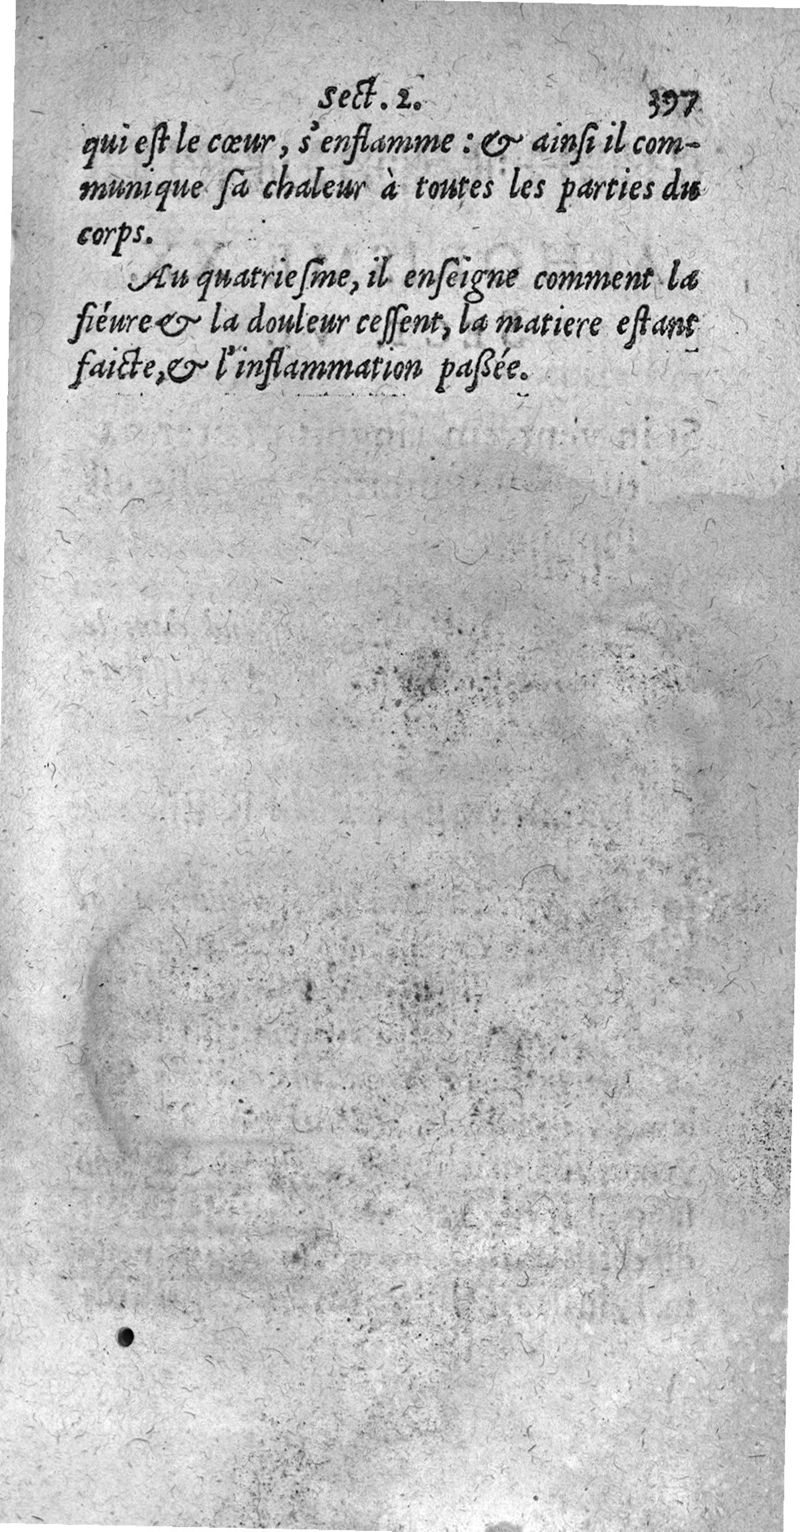 sect. 2. 397
qui eſt le cœur, s'enflamme : & ainſi il com-
munique ſa chaleur à toutes les parties du
corps.
Au quatrieſme, il enſeigne comment la
fiéure & la douleur ceſſent, la matiere eſtant
faicte, & l'inflammation paßée.